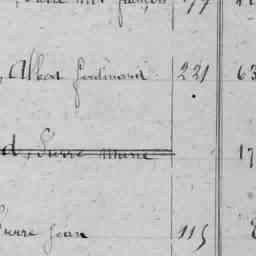 , Albert Ferdinand 221 63
d, Pierre Marie 17
Pierre Jean 115